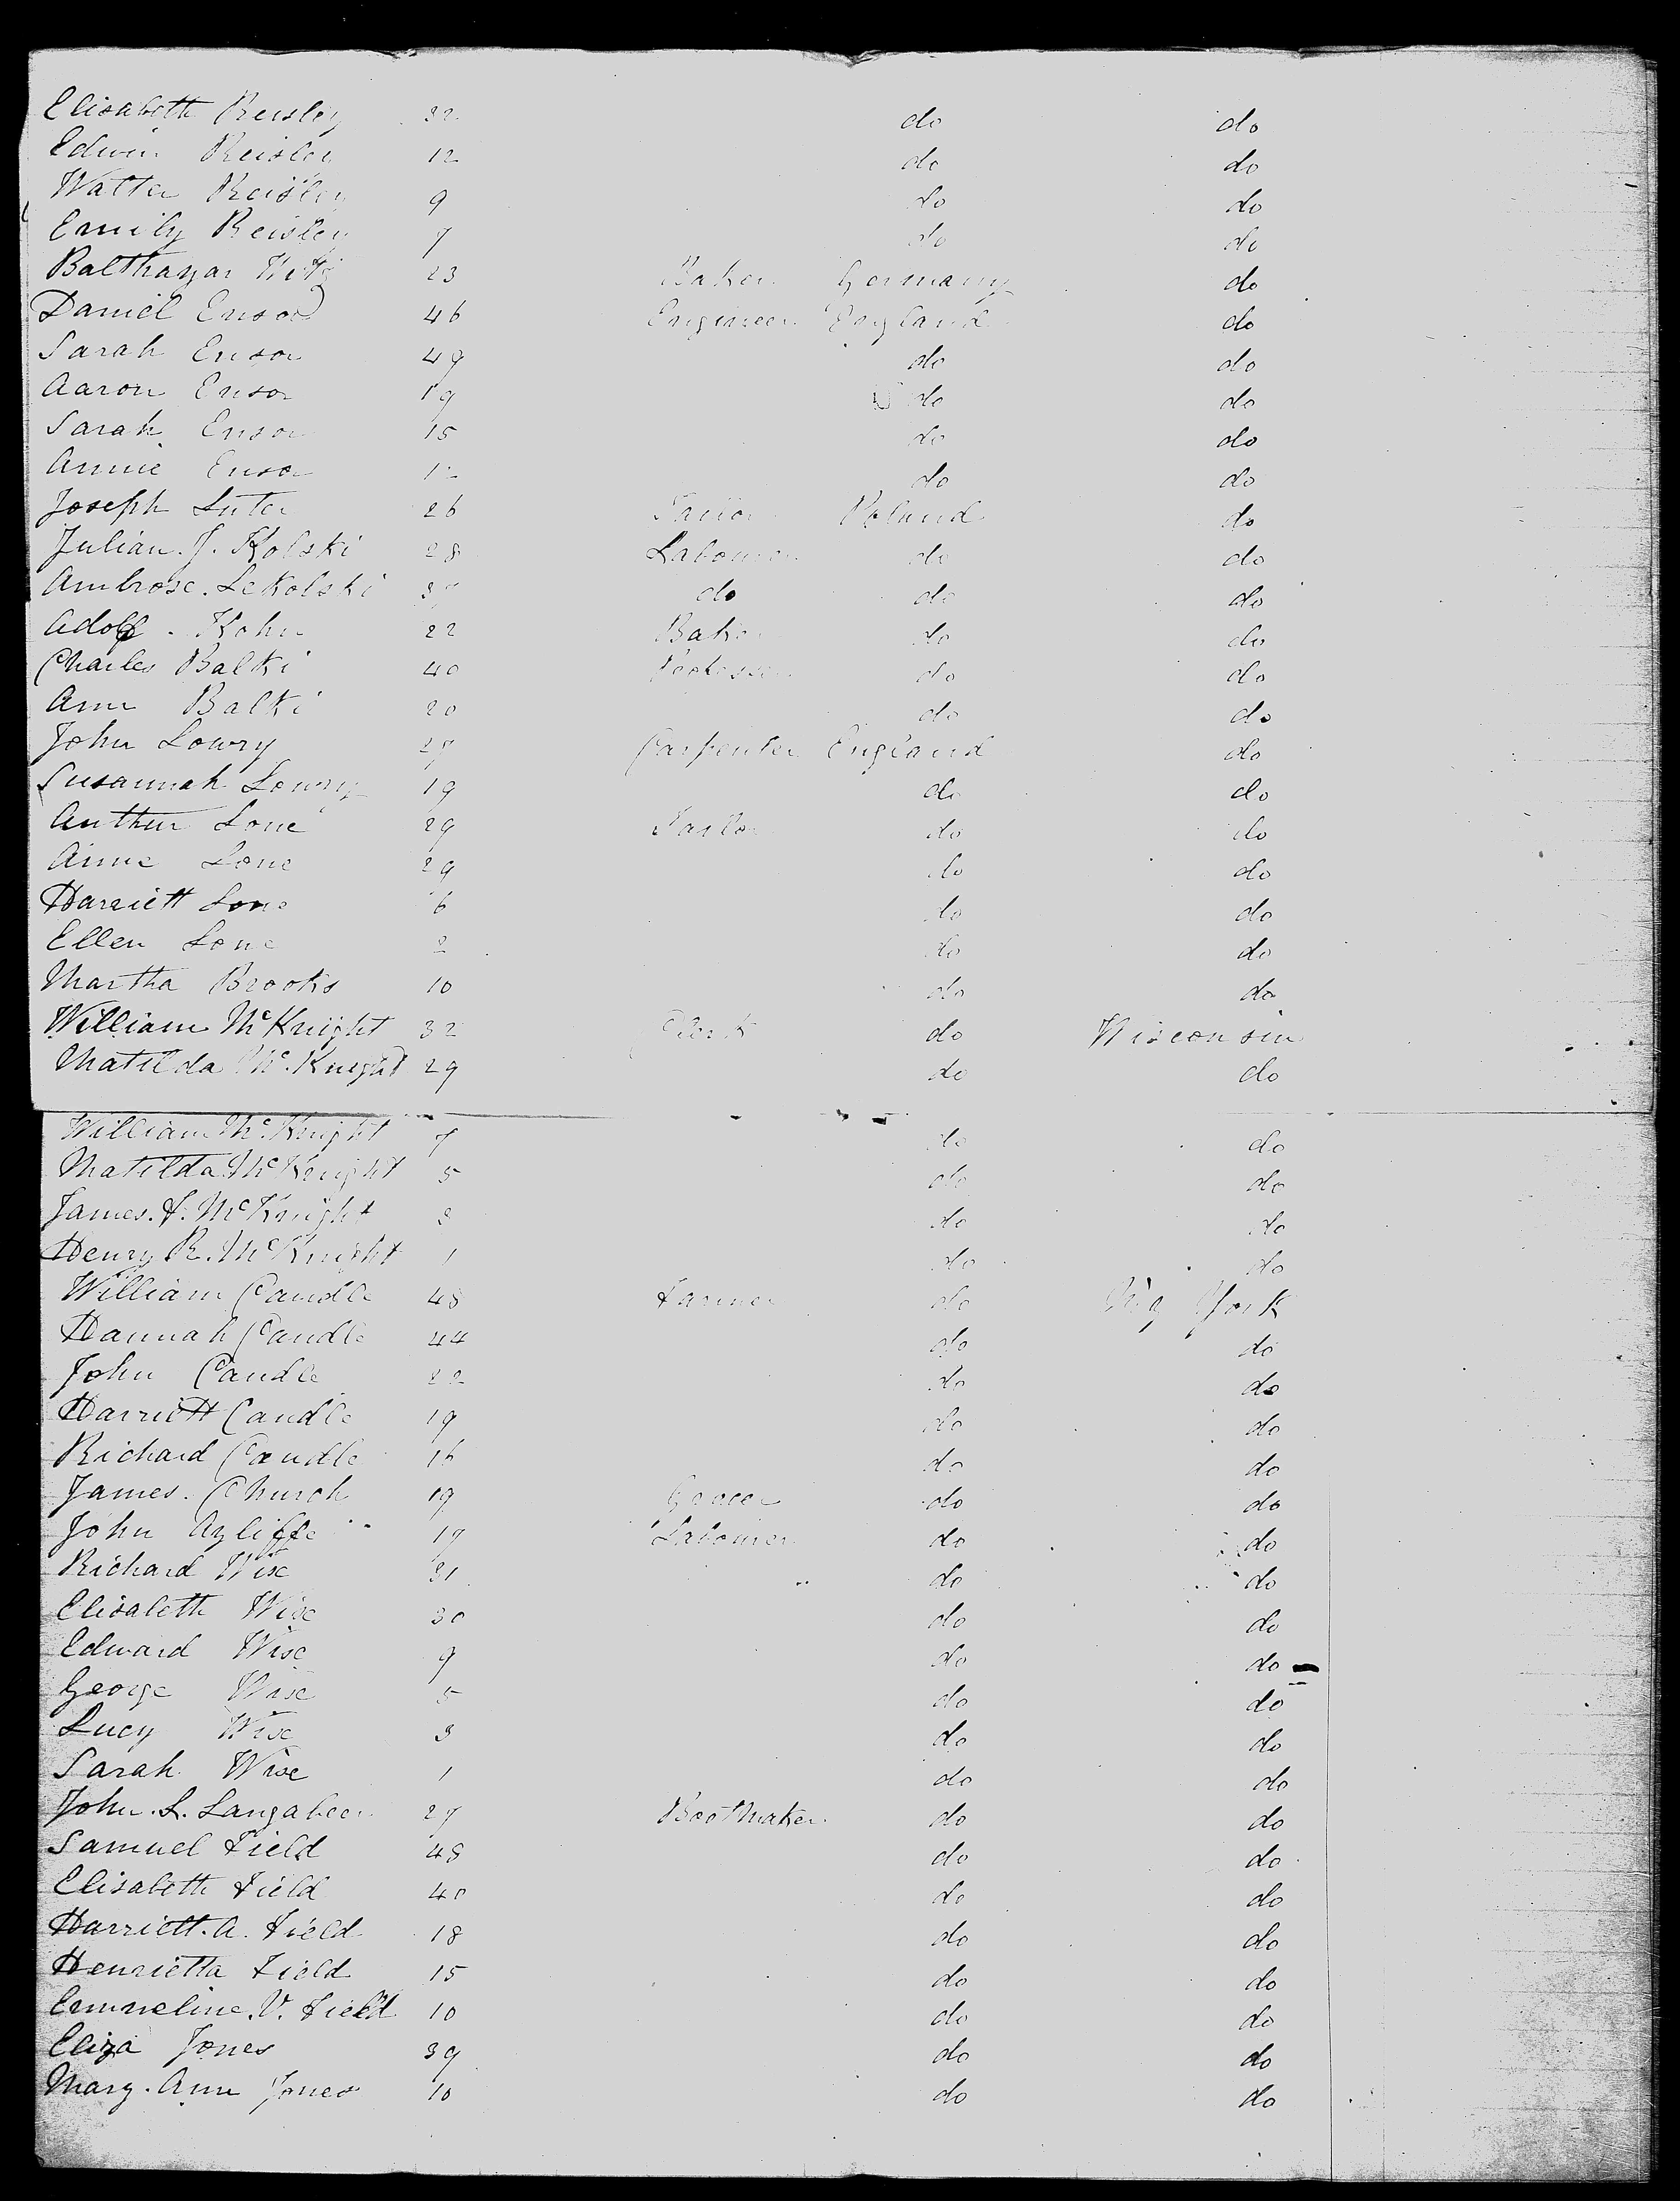 Elisabeth Reisley 32 do do
Edwin Reisley 12 do do
Walter Reisley 9 do do
Emily Reisley 7 do do
Balthazar 23 Baker Germany do
Daniel Ensor 46 Engineer England do
Sarah Ensor 49 do do
Aaron Ensor 19 do do
Sarah Ensor 15 do do
Annie Ensor do do
Joseph Luter 26 Tailor Poland do
Julian. J. Kolski 28 Labourer do do
Ambrose. Lekolski do do do
Adolf. Kohn 22 Baker do do
Charles Balki 40 Professor do do
Ann Balki 20 do do
John Lowry 27 Carpenter England do
Susannah Lowry 19 do do
Arthur Lone 29 Tailor do do
Anne Lone 29 do do
Harriett Lone 6 do do
Ellen Lone 2 do do
Martha Brooks 10 do do
William McKnight 32 Clerk do Wisconsin
Matilda Mc.Knight 29 do do
William Mc.Knight 7 do do
Matilda McKnight 5 do do
James. F. McKnight 3 do do
Henry R. McKnight 1 do do
William Candle 48 Farmer do York
Hannah Candle 44 do do
John Candle 22 do do
Harriett Candle 19 do do
Richard Candle 16 do do
James. Church 19 Grocer do do
John Ayliffe 17 Labourer do do
Richard Wise 31 do do
Elisabeth Wise 30 do do
Edward Wise 9 do do
George Wise 5 do do
Lucy Wise 3 do do
Sarah Wise 1 do do
John. L. Langabeer 27 Bootmaker do do
Samuel Field 48 do do
Elisabeth Field 40 do do
Harriett. A. Field 18 do do
Henrietta Field 15 do do
Emmeline. V. Field 10 do do
Eliza Jones 39 do do
Mary. Ann Jones 10 do do